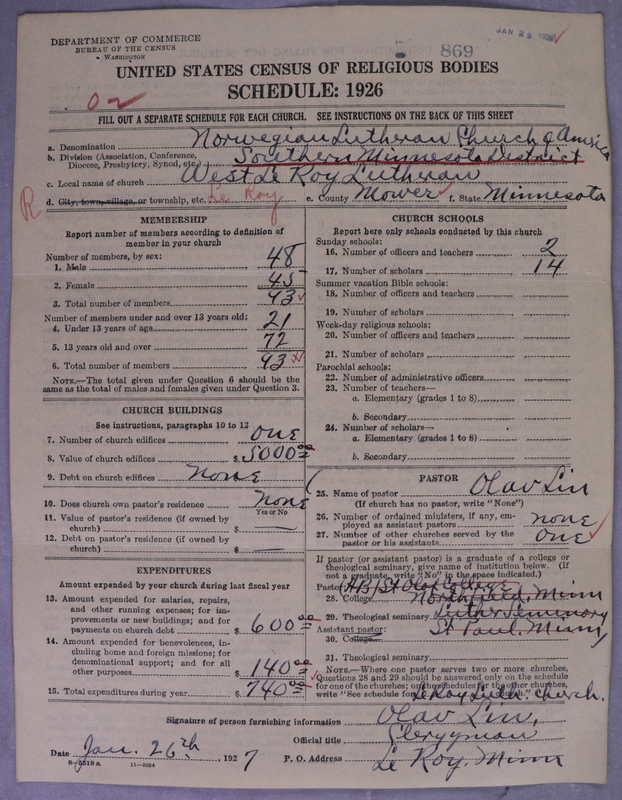 DEPARTMENT OF COMMERCE
BUREAU OF THE CENSUS
WASHINGTON
JAN 29 1927
869
UNITED STATES CENSUS OF RELIGIOUS BODIES
SCHEDULE: 1926
FILL OUT A SEPARATE SCHEDULE FOR EACH CHURCH. SEE INSTRUCTIONS ON THE BACK OF THIS SHEET
a. Denomination Norwegian Lutheran Church of America
b. Division (Association, Conference, Diocese, Presbytery, Synod, etc.) Southern Minnesota District
c. Local name of church West Le Roy Lutheran
d. City, town, village, or township, etc. Le Roy e. County Mower f. State Minnesota
R
MEMBERSHIP
Report number of members according to definition of
member in your church
Number of members, by sex:
1. Male 48
2. Female 45
3. Total number of members 93
Number of members under and over 13 years old:
4. Under 13 years of age 21
5. 13 years old and over 72
6. Total number of members 93
NOTE.—The total given under Question 6 should be the
same as the total of males and females given under Question 3.
CHURCH BUILDINGS
See instructions, paragraphs 10 to 12
7. Number of church edifices One
8. Value of church edifices $ 5000 00
9. Debt on church edifices none
10. Does church own pastor's residence none
Yes or No
11. Value of pastor's residence (if owned by
church) $ —
12. Debt on pastor's residence (if owned by
church) $ —
EXPENDITURES
Amount expended by your church during last fiscal year
13. Amount expended for salaries, repairs,
and other running expenses; for im-
provements or new buildings; and for
payments on church debt $ 600 00
14. Amount expended for benevolences, in-
cluding home and foreign missions; for
denominational support; and for all
other purposes $ 140 00
15. Total expenditures during year $ 740 00
CHURCH SCHOOLS
Report here only schools conducted by this church
Sunday schools:
16. Number of officers and teachers 2
17. Number of scholars 14
Summer vacation Bible schools:
18. Number of officers and teachers
19. Number of scholars
Week-day religious schools:
20. Number of officers and teachers
21. Number of scholars
Parochial schools:
22. Number of administrative officers
23. Number of teachers—
a. Elementary (grades 1 to 8)
b. Secondary
24. Number of scholars—
a. Elementary (grades 1 to 8)
b. Secondary
PASTOR
25. Name of pastor Olav Lin
(If church has no pastor, write "None")
26. Number of ordained ministers, if any, em-
ployed as assistant pastors none
27. Number of other churches served by the
pastor or his assistants One
If pastor (or assistant pastor) is a graduate of a college or
theological seminary, give name of institution below. (If
not a graduate, write "No" in the space indicated.)
Pastor: St Olaf College
28. College Northfield, Minn
29. Theological seminary Luther Seminary
Assistant pastor: St Paul, Minn
30. College
31. Theological seminary
NOTE.—Where one pastor serves two or more churches,
Questions 28 and 29 should be answered only on the schedule
for one of the churches; on the schedules for the other churches
write "See schedule for Le Roy Luth. church.
Signature of person furnishing information Olav Lin,
Official title Clergyman
Date Jan. 26th, 1927 P. O. Address Le Roy, Minn
11—9254